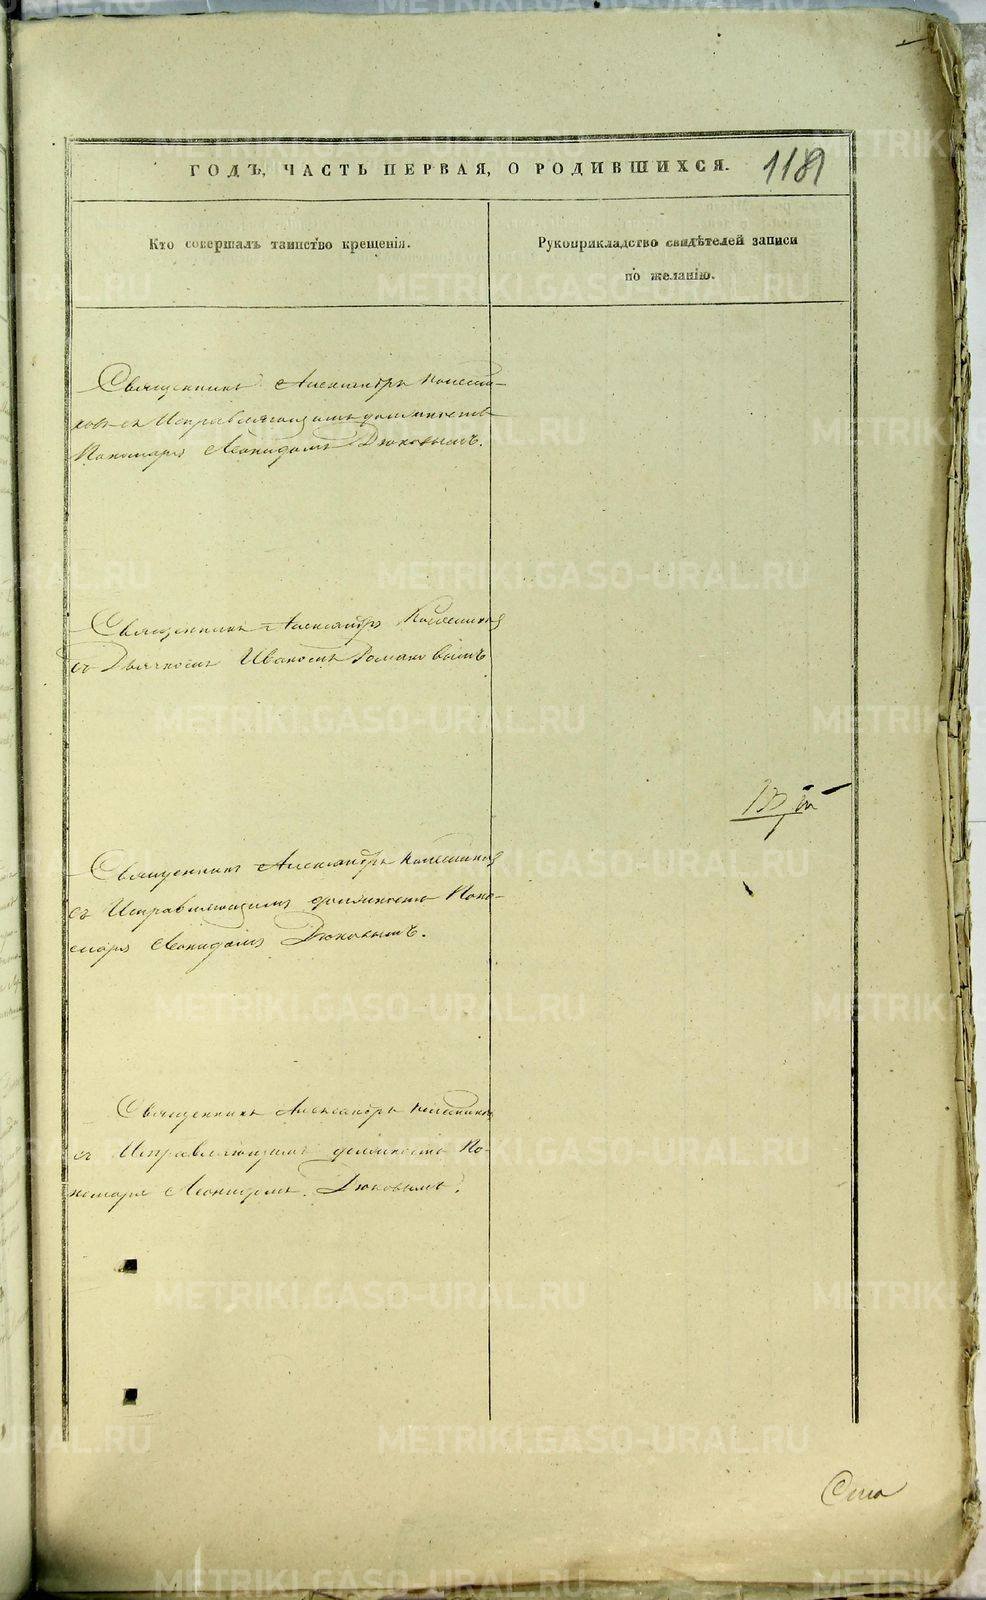 ГОДЪ, ЧАСТЬ ПЕРВАЯ, О РОДИВШИХСЯ.
1181
Кто совершалъ таинство крещенія.
Рукоприкладство свидѣтелей записи
по желанію.
Священникъ Александръ Колесни-
ковъ съ Исправляющимъ должность
Пономаря Леонидомъ Дюковымъ.
Священникъ Александръ Колесников
съ Дьячкомъ Иваномъ Романовымъ
Священникъ Александръ Колесников
съ Исправляющимъ должность Поно-
маря Леонидомъ Дюковымъ.
Священникъ Александръ Колесников
съ Исправляющимъ должность По-
номаря Леонидомъ Дюковымъ.
METRIKI.GASO-URAL.RU